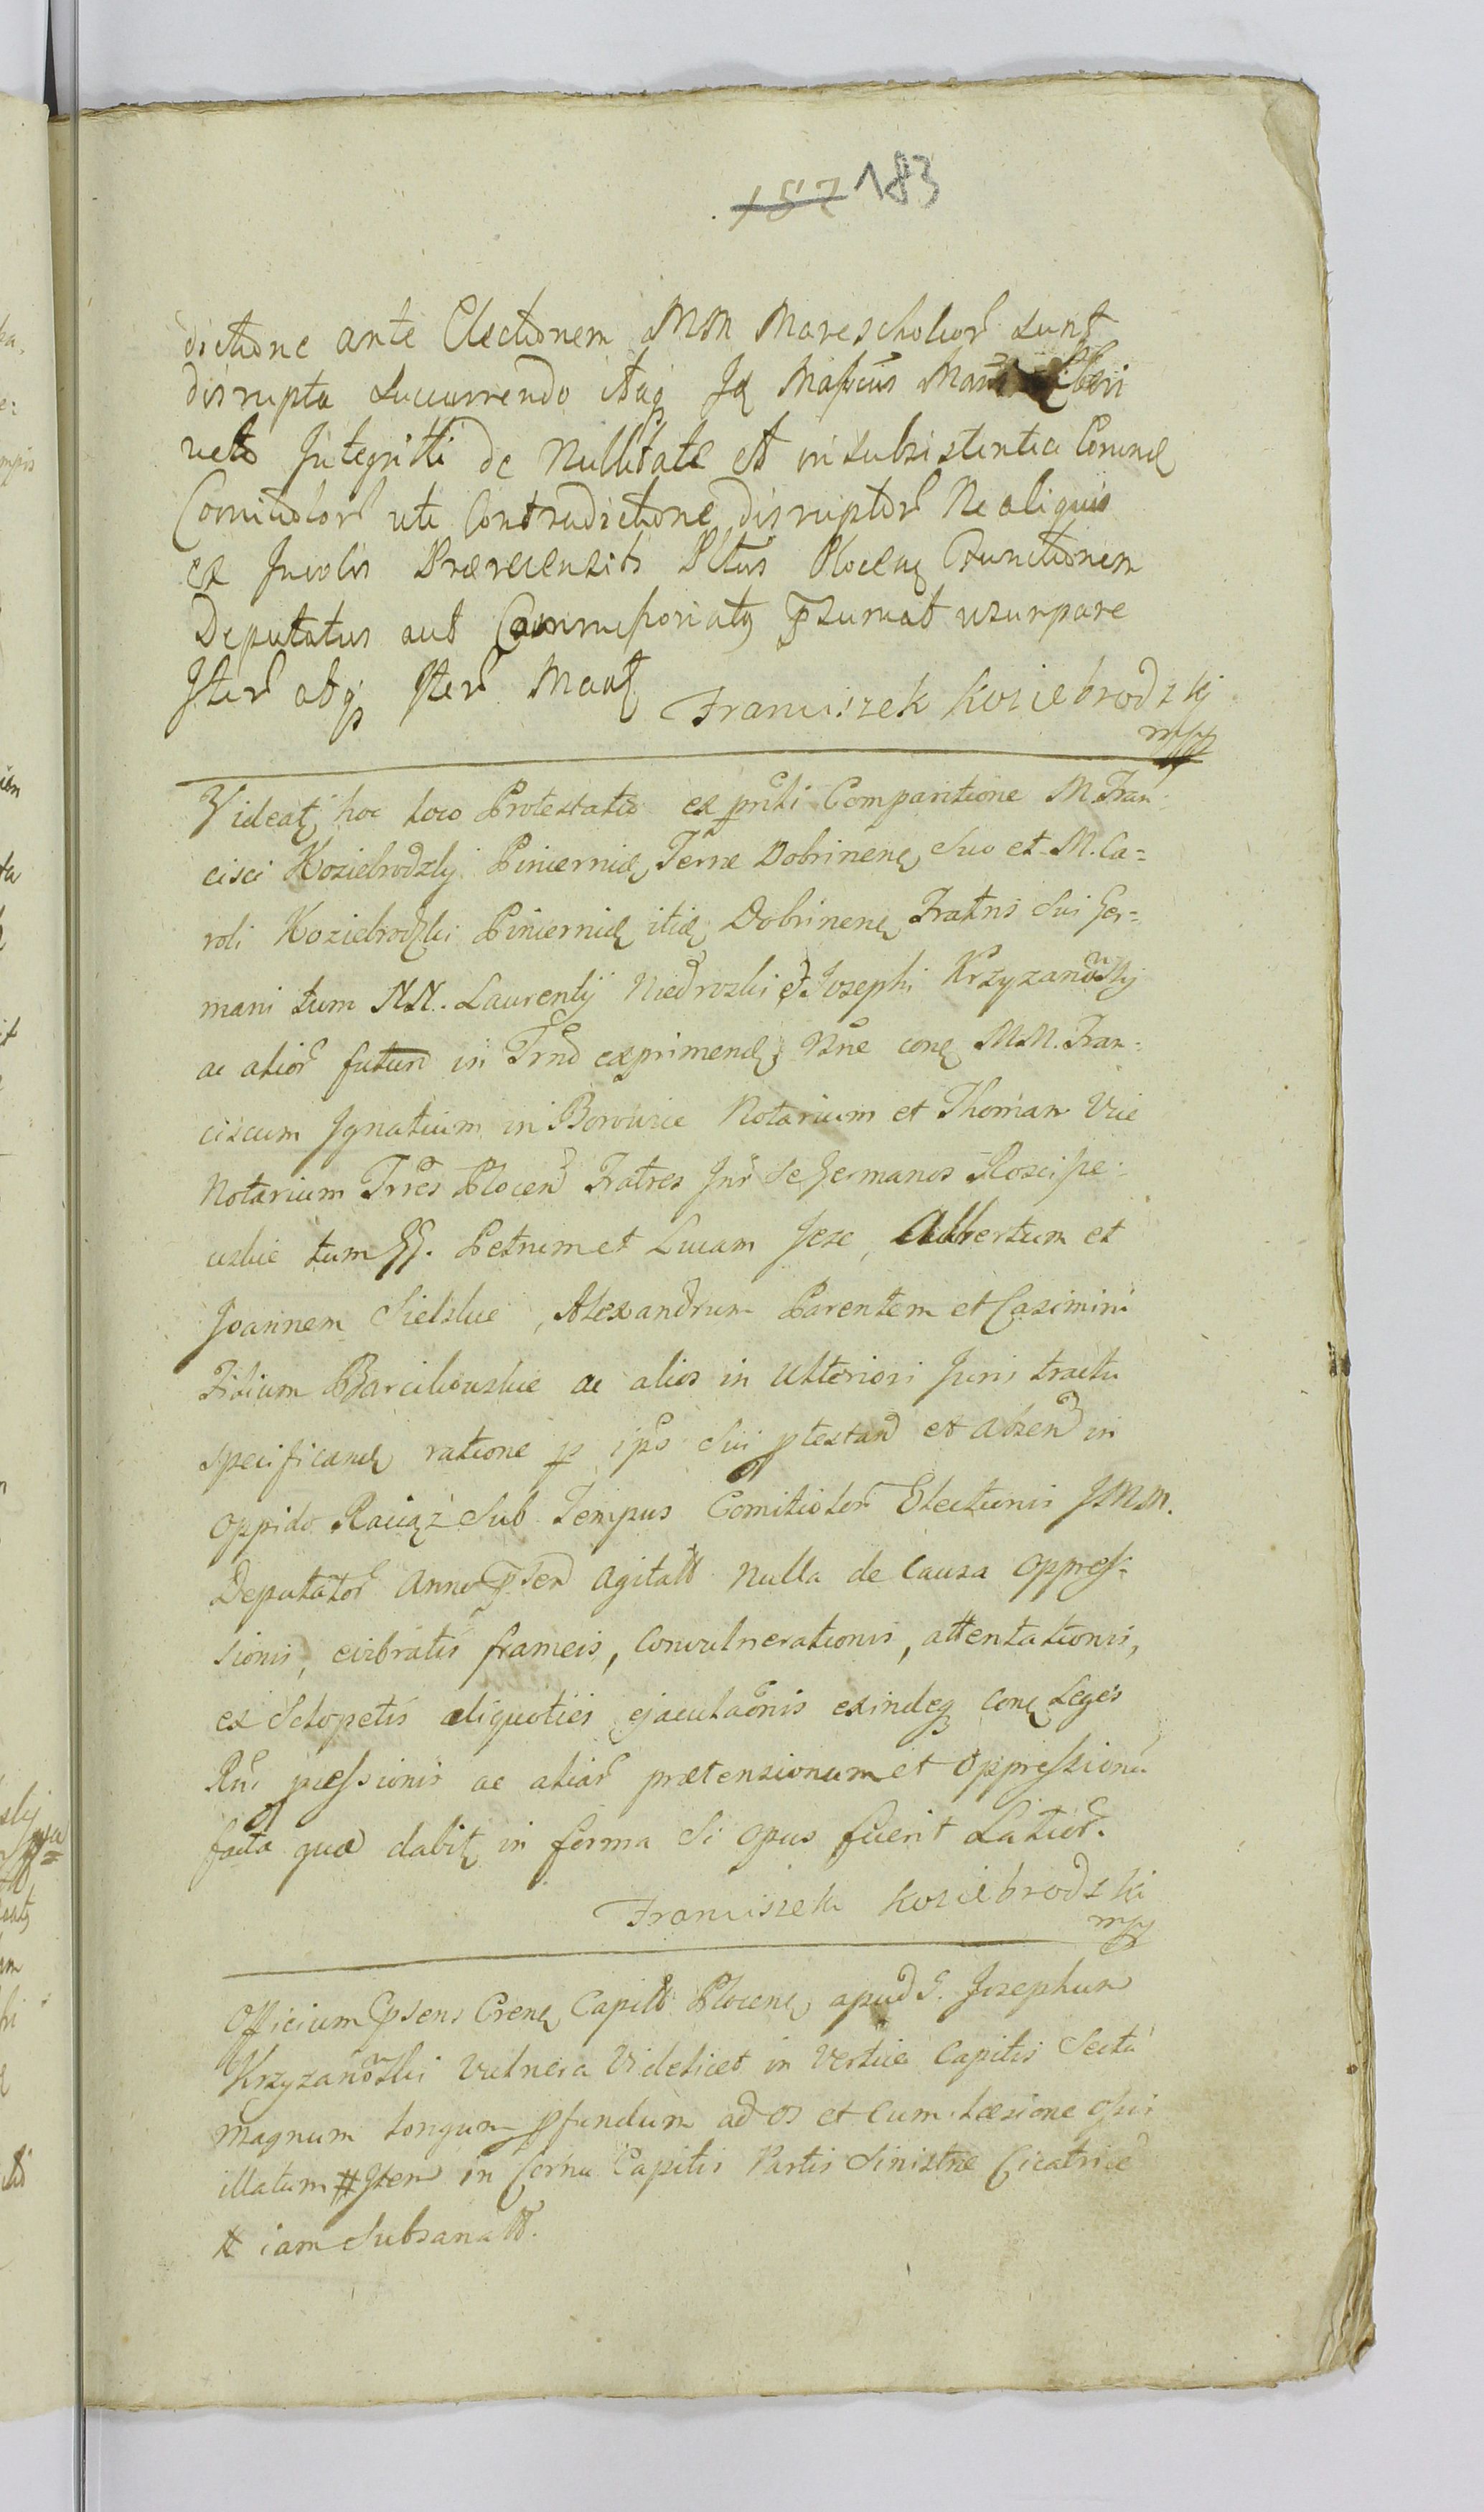 157 183
dictione ante Electionem MM Mareschalior sunt
disrupta Succurrendo itaq Jd Mansci
veto Integritti de Nullitate et in subsistentia
Comitiolor uti Contradictione disruptor Ne aliquis
ex Incolis Plocen Functionem
Deputatus aut psumat usurpare
Iter atq Iter Manf
Franciszek Koziebrodzkj
mpp
Videat hoc loco Protestatio ex prnti Comparitione M. Fran-
cisci Koziebrodzky Pincernid Terræ Dobrinen Suo et M. Ca=
roli Koziebrodzki Pincernid itid Dobrinen Fratris Sui Ger=
mani tum NN. Laurentij Niedrozki et Josephi Krzyzanowskj
ac alior futur in Trnd exprimend, Nne con MM. Fran=
ciscum Ignatium in Borowice Notarium et Thomam Vice
Notarium Trres Plocen Fratres Inr Se Germanos Kosci pe:
uskie tum GG. Petrum et Lucam Jeze, Albertum et
Joannem Sielskie, Alexandrum Parentem et Casimirū
Filium Barcikowskie ac alios in Ulteriori Juris tractu
specificand ratione p ips Sui ptestand et absen in
oppido Raciąż Sub Tempus Comitiolor Electionis JMM.
Deputator Anno psen agitatt Nulla de causa oppres-
sionis, evibratis frameis, Convulnerationis, attentationis,
ex Sclopetis aliquoties ejaculaonis exindeq con Leges
Rni pcessionis ac aliar prætensionum et oppressionū
facta quæ dabit in forma Si opus fuerit Latior.
Franciszek Koziebrodzki
mpp
Officium psens Cren Capitt Plocen apud G. Josephum
Krzyzanowski Vulnera Videlicet in Vertice Capitis Sectū
magnum longum pfundum ad os et cum læsione osis
illatum # Item in Cornu Capitis Partis Sinistræ Cicatrice
# iam Subsanatt.